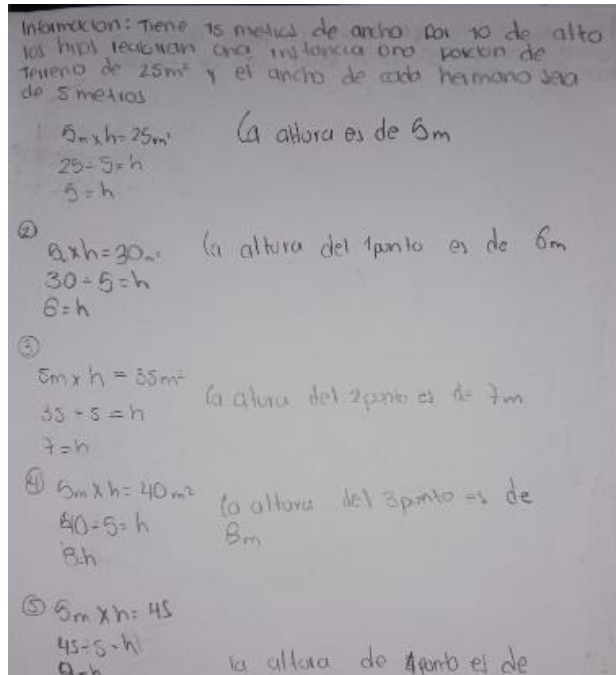 Información: Tiene 15 metros de ancho por 10 de alto
los hijos reciben una instancia una porcion de
terreno de 25m² y el ancho de cada hermano sera
de 5 metros
5m x h = 25m² La altura es de 5m
25 ÷ 5 = h
5 = h
②
5 x h = 30m² la altura del 1punto es de 6m
30 ÷ 5 = h
6 = h
③
5m x h = 35m²
35 ÷ 5 = h la altura del 2punto es de 7m
7 = h
④ 5m x h = 40m² la altura del 3punto es de
40 ÷ 5 = h 8m
8 = h
⑤ 5m x h = 45
45 ÷ 5 = h
9 = h la altura de 4punto es de